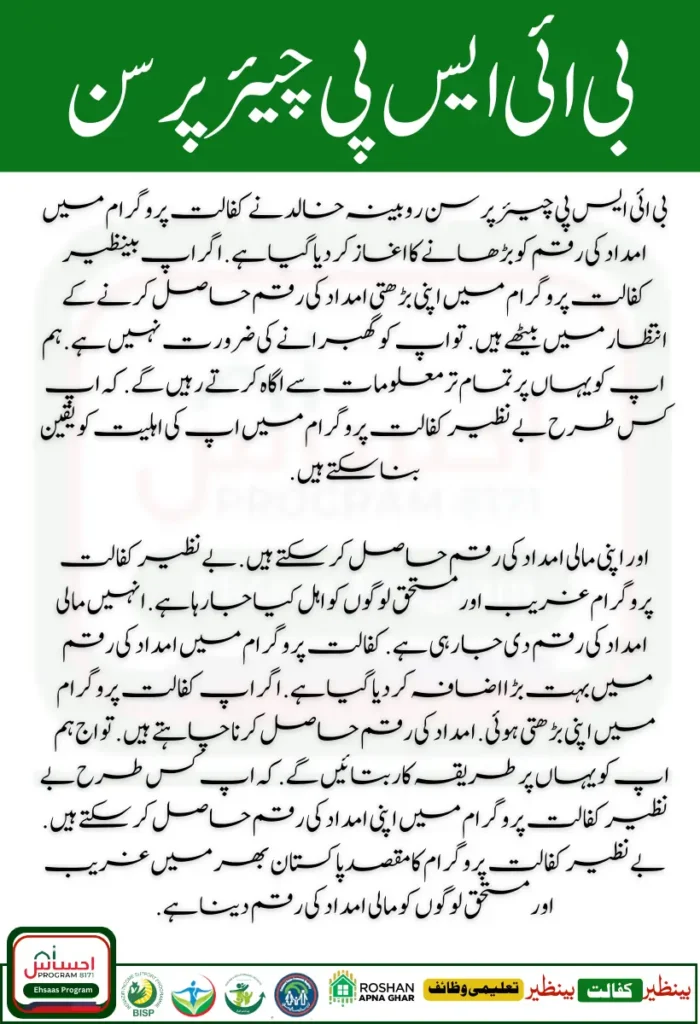 بی ائی ایس پی چیئر پرسن
بی ائی ایس پی چیئر پرسن روبینہ خالد نے کفالت پروگرام میں
امداد کی رقم کو بڑھانے کا اغاز کر دیا گیا ہے. اگر اپ بینظیر
کفالت پروگرام میں اپنی بڑھتی امداد کی رقم حاصل کرنے کے
انتظار میں بیٹھے ہیں. تو اپ کو گھبرانے کی ضرورت نہیں ہے. ہم
اپ کو یہاں پر تمام تر معلومات سے اگاہ کرتے رہیں گے. کہ اپ
کس طرح بے نظیر کفالت پروگرام میں اپ کی اہلیت کو یقین
بنا سکتے ہیں.
اور اپنی مالی امداد کی رقم حاصل کر سکتے ہیں. بے نظیر کفالت
پروگرام غریب اور مستحق لوگوں کو اہل کیا جا رہا ہے. انہیں مالی
امداد کی رقم دی جا رہی ہے. کفالت پروگرام میں امداد کی رقم
میں بہت بڑا اضافہ کر دیا گیا ہے. اگر اپ کفالت پروگرام
میں اپنی بڑھتی ہوئی. امداد کی رقم حاصل کرنا چاہتے ہیں. تو اج ہم
اپ کو یہاں پر طریقہ کار بتائیں گے. کہ اپ کس طرح بے
نظیر کفالت پروگرام میں اپنی امداد کی رقم حاصل کر سکتے ہیں.
بے نظیر کفالت پروگرام کا مقصد پاکستان بھر میں غریب
اور مستحق لوگوں کو مالی امداد کی رقم دینا ہے.
احساس
PROGRAM 8171
Ehsaas Program
BISP
ROSHAN
APNA GHAR
بینظیر تعلیمی وظائف
بینظیر کفالت
احساس
PROGRAM 8171